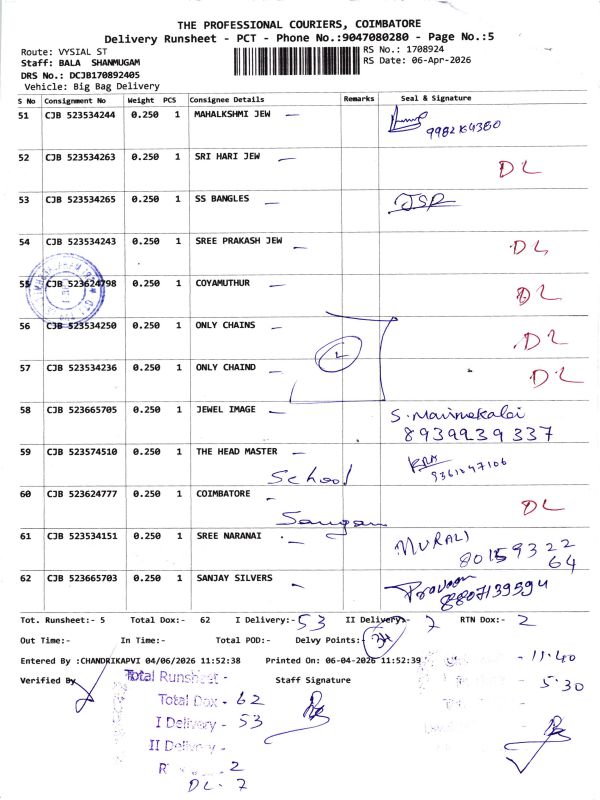 THE PROFESSIONAL COURIERS, COIMBATORE
Delivery Runsheet - PCT - Phone No.:9047080280 - Page No.:5
Route: VYSIAL ST
RS No.: 1708924
Staff: BALA SHANMUGAM
RS Date: 06-Apr-2026
DRS No.: DCJB170892405
Vehicle: Big Bag Delivery
S No Consignment No Weight PCS Consignee Details Remarks Seal & Signature
51 CJB 523534244 0.250 1 MAHALKSHMI JEW —
52 CJB 523534263 0.250 1 SRI HARI JEW — DL
53 CJB 523534265 0.250 1 SS BANGLES — JSR
54 CJB 523534243 0.250 1 SREE PRAKASH JEW — DL
55 CJB 523624798 0.250 1 COYAMUTHUR — DL
56 CJB 523534250 0.250 1 ONLY CHAINS — DL
57 CJB 523534236 0.250 1 ONLY CHAIND — DL
58 CJB 523665705 0.250 1 JEWEL IMAGE — S.
8939939337
59 CJB 523574510 0.250 1 THE HEAD MASTER —
School
60 CJB 523624777 0.250 1 COIMBATORE - DL
Sangam
61 CJB 523534151 0.250 1 SREE NARANAI - MURALI
80159322
64
62 CJB 523665703 0.250 1 SANJAY SILVERS — Praveen
8807139594
Tot. Runsheet:- 5 Total Dox:- 62 I Delivery:- 53 II Delivery:- 7 RTN Dox:- 2
Out Time:- In Time:- Total POD:- Delvy Points:-
Entered By :CHANDRIKAPVI 04/06/2026 11:52:38 Printed On: 06-04-2026 11:52:39
11:40
Verified By Staff Signature
5:30
Total Runsheet -
Total Dox - 62
I Delivery - 53
II Delivery -
2
DL - 7